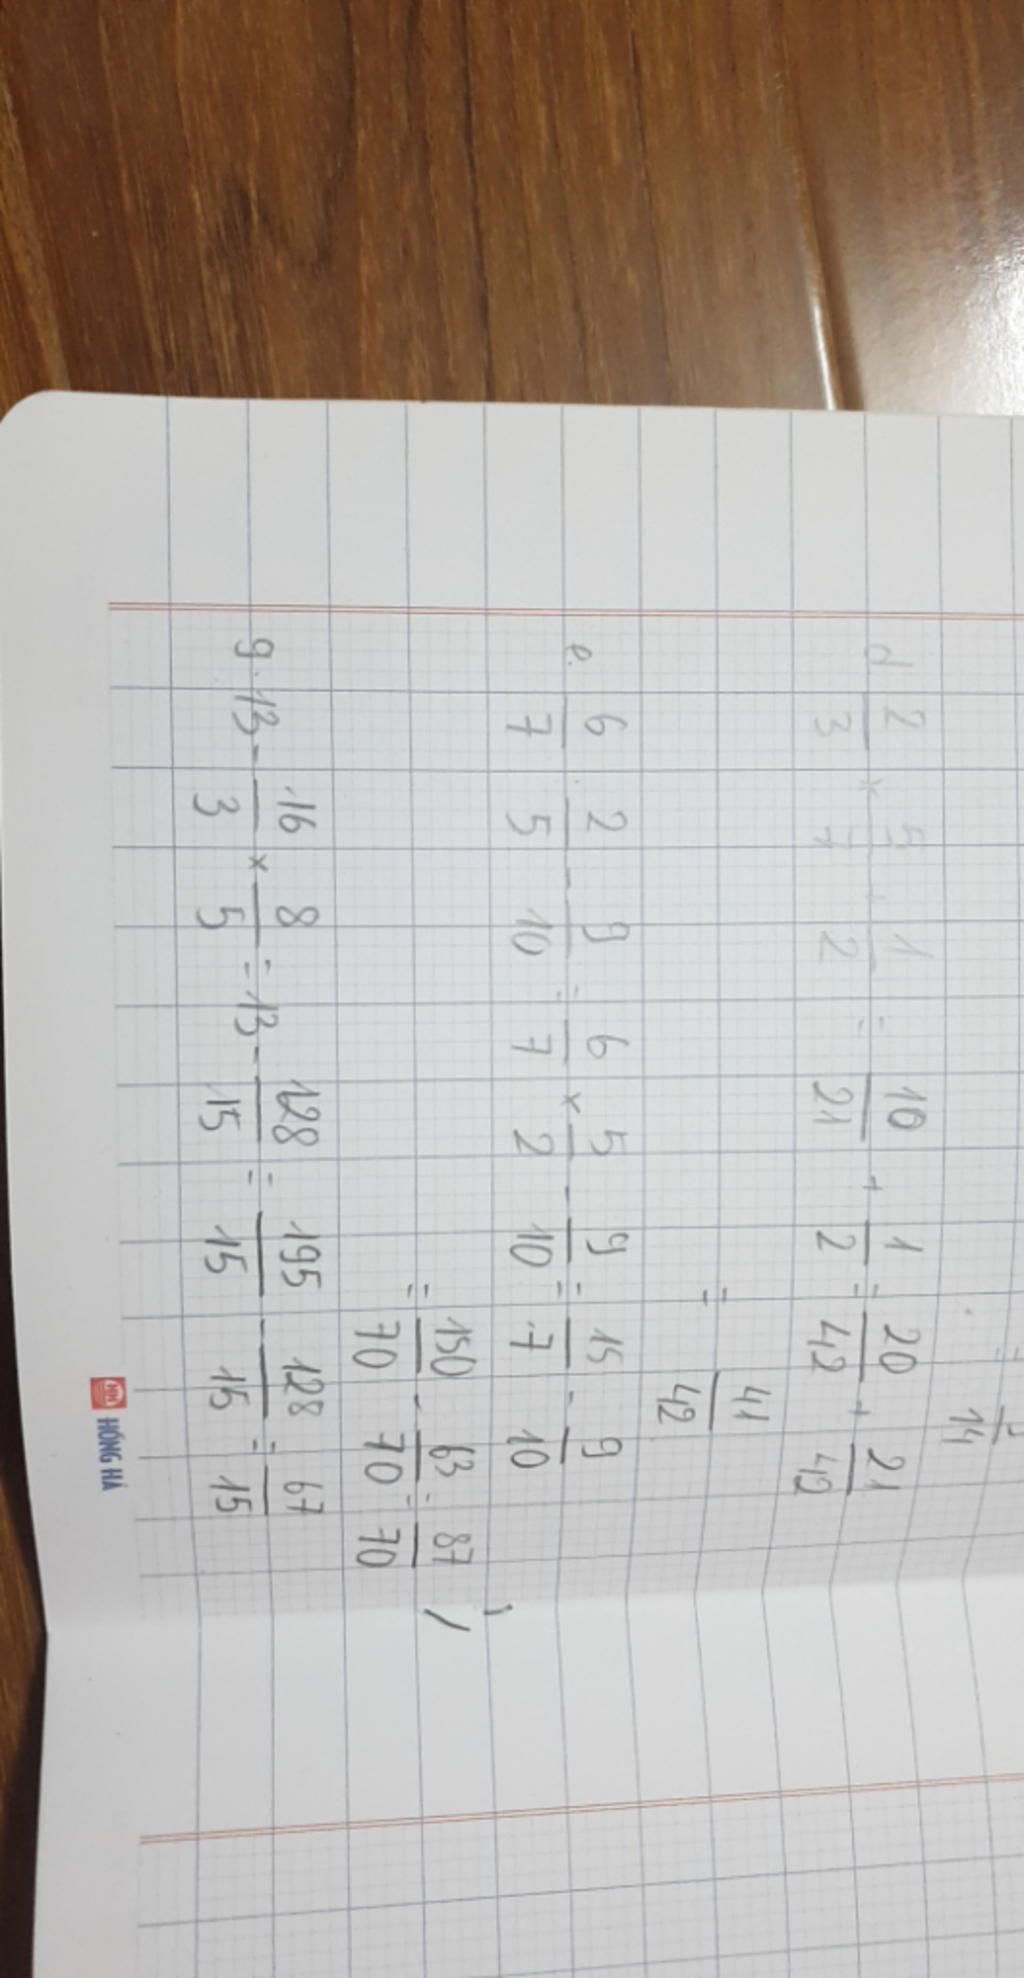 14
d. 2/3 × 5/7 + 1/2 = 10/21 + 1/2 = 20/42 + 21/42
= 41/42
e. 6/7 : 2/5 - 9/10 = 6/7 × 5/2 - 9/10 = 15/7 - 9/10
= 150/70 - 63/70 = 87/70
g. 13 - 16/3 × 8/5 = 13 - 128/15 = 195/15 - 128/15 = 67/15
HỒNG HÀ